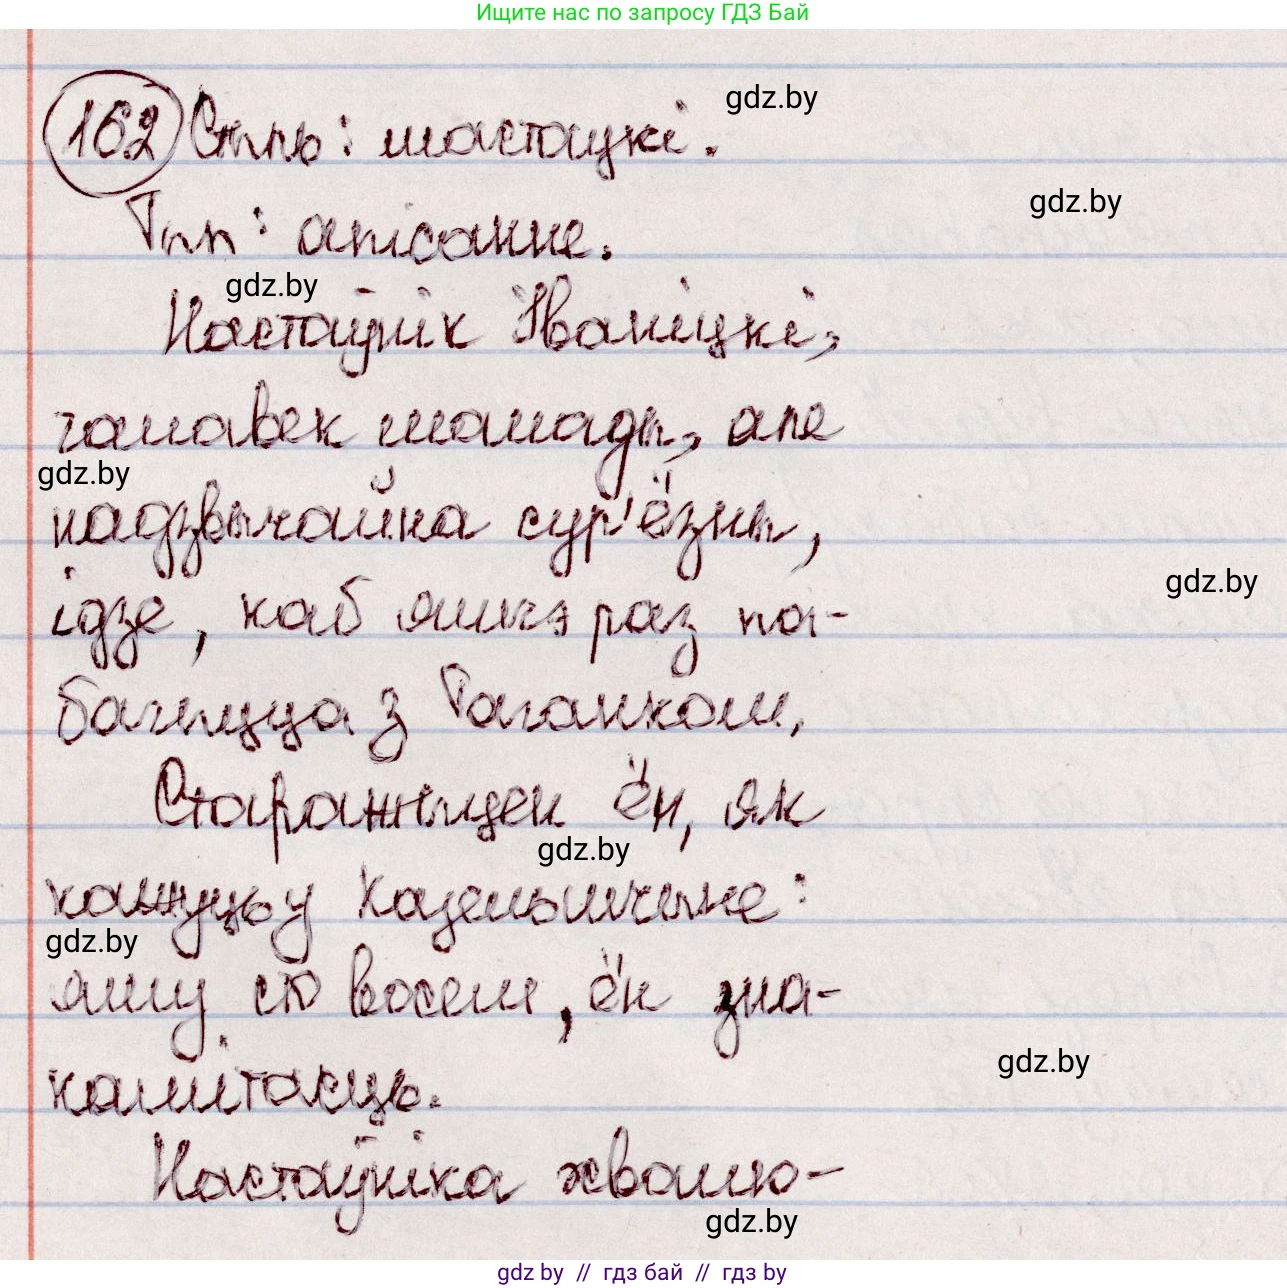 Ищите нас по запросу ГДЗ Бай
162 Стыль: мастацкі. gdz.by
gdz.by
Тып: апісанне.
gdz.by
Настаўнік Іваніцкі,
чалавек малады, але
gdz.by
надзвычайна сур'ёзны,
gdz.by
ідзе, каб яшчэ раз па-
бачыцца з Таганком.
Старажыцец ён, як
gdz.by
кажуць у Казельшчыне:
gdz.by
яму сто восем, ён зна-
gdz.by
камітасць.
Настаўніка хвалю-
gdz.by
gdz by // гдз бай // гдз by